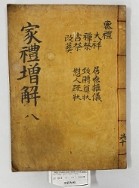 喪禮
大祥 居喪雜儀
禫祭 致賻奠狀
吉祭 慰人疏狀
改葬
家禮增解 八